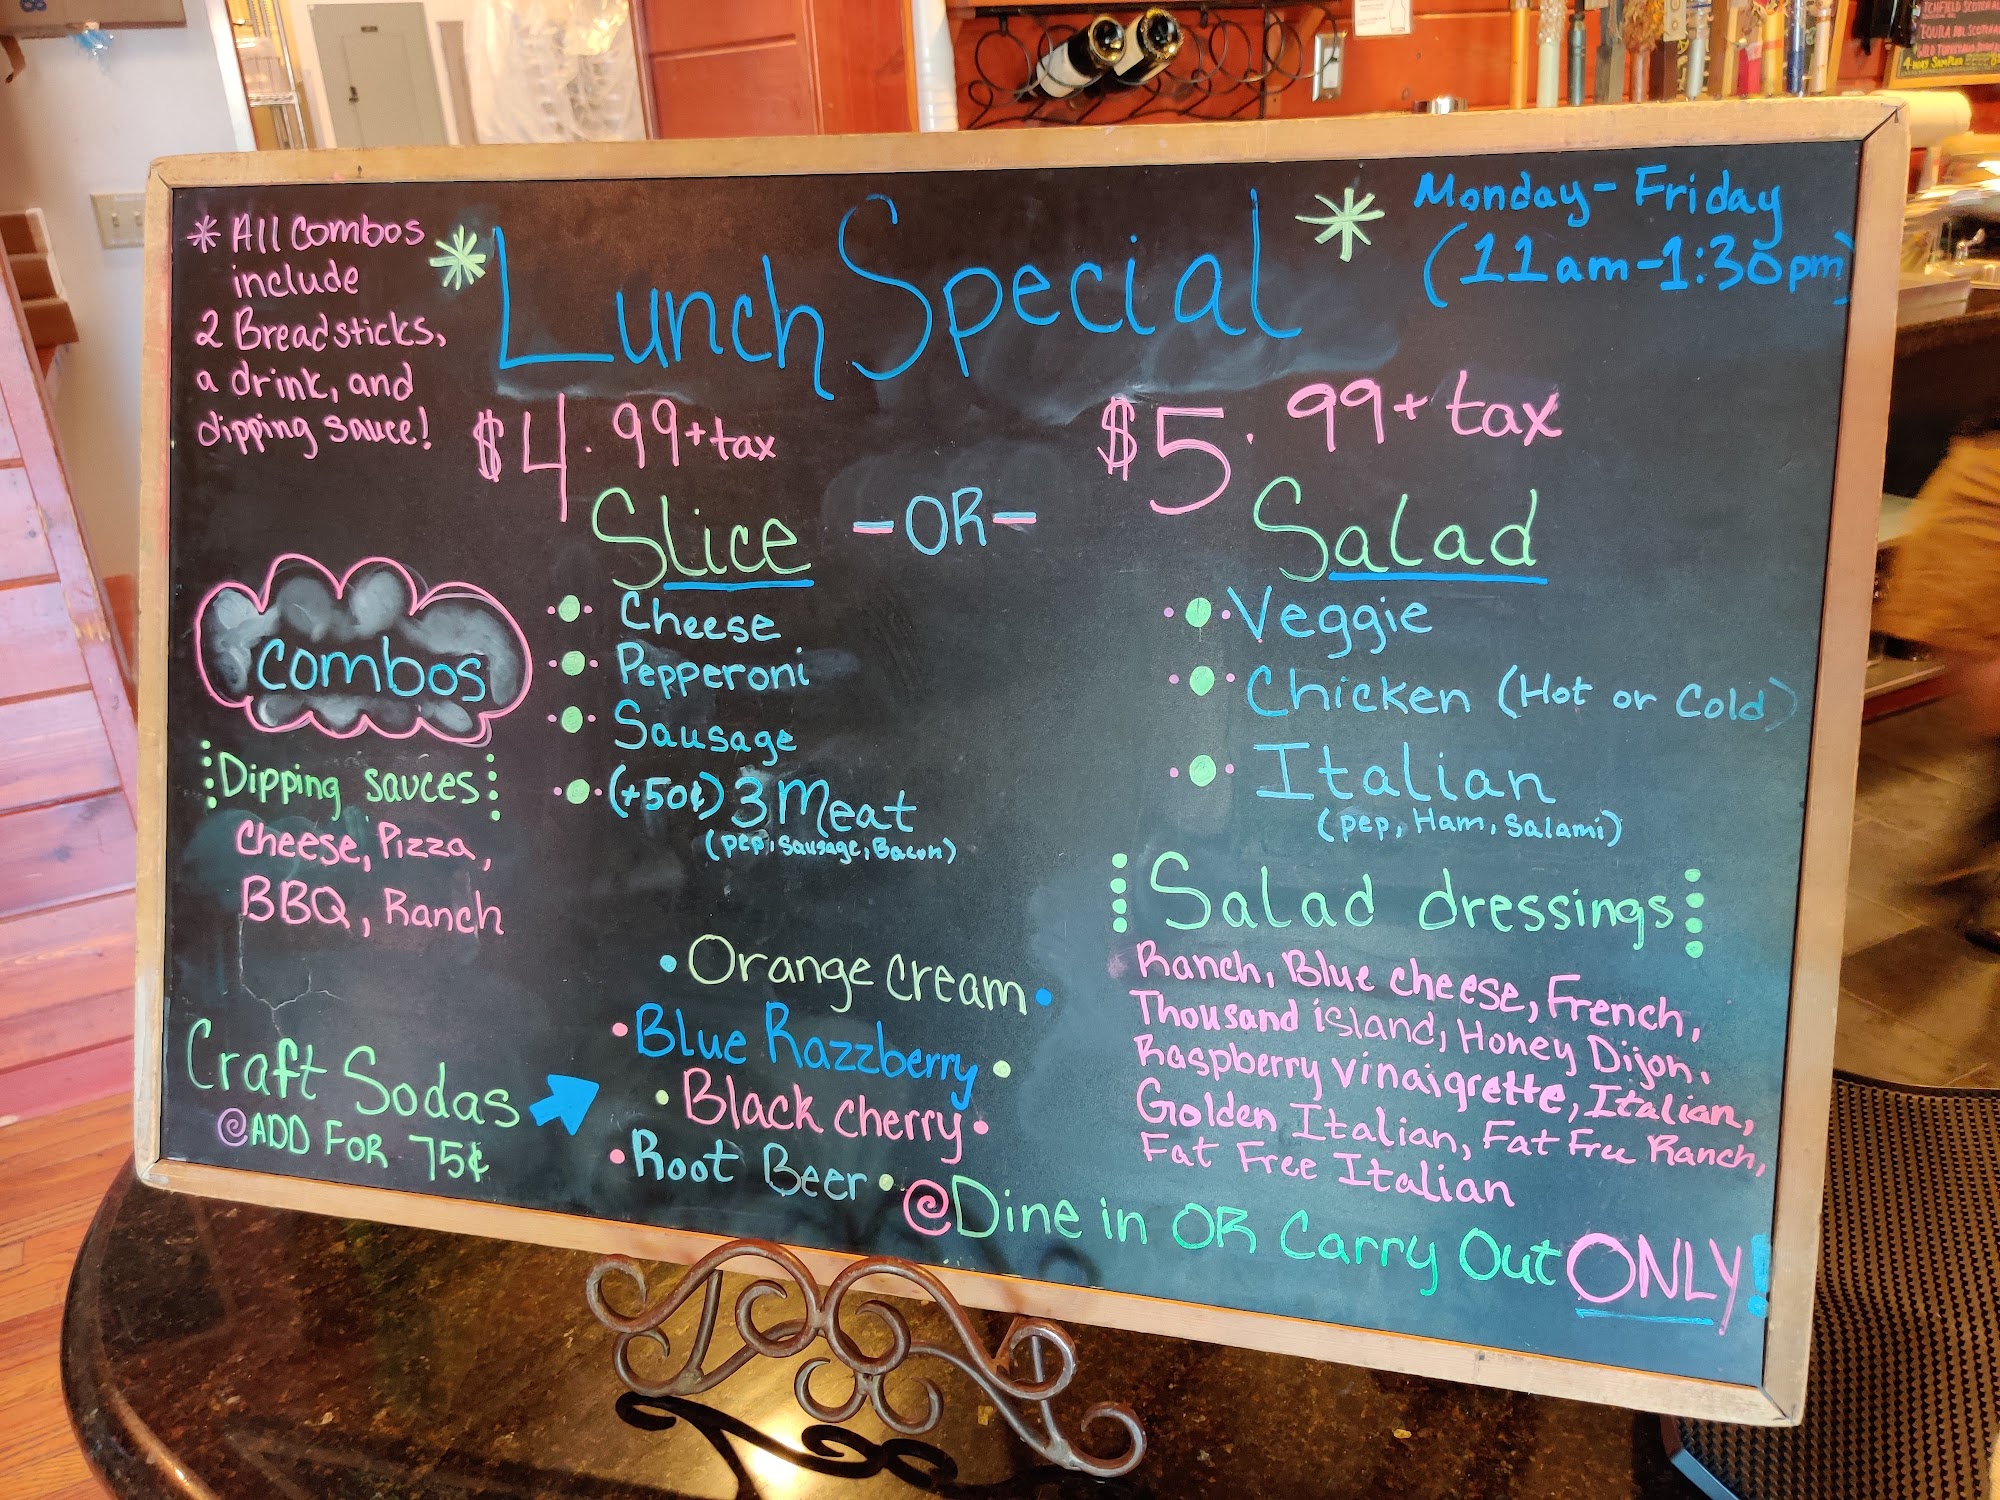 * All Combos
include
2 Breadsticks,
a drink, and
dipping sauce!
* Lunch Special *
Monday-Friday
(11am-1:30pm)
$4.99+tax
Slice
-OR-
$5.99+tax
Salad
Combos
Dipping sauces
Cheese, Pizza,
BBQ, Ranch
Cheese
Pepperoni
Sausage
(+50¢) 3 Meat
(pep, Sausage, Bacon)
Veggie
Chicken (Hot or Cold)
Italian
(pep, Ham, Salami)
Salad dressings
Ranch, Blue cheese, French,
Thousand island, Honey Dijon,
Raspberry vinaigrette, Italian,
Golden Italian, Fat Free Ranch,
Fat Free Italian
Craft Sodas
@ADD FOR 75¢
Orange cream
Blue Razzberry
Black cherry
Root Beer
@Dine in OR Carry Out ONLY!